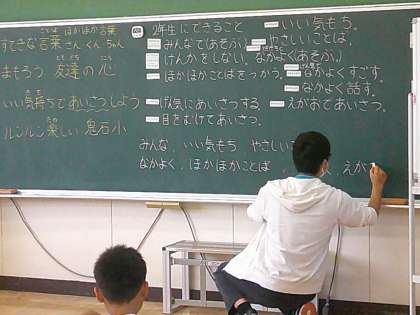 すてきな言葉 ほかほか言葉
さん くん ちゃん
まもろう 友達の心
いい気持ちであいさつしよう
ルンルン楽しい 鬼石小
2年生にできること
みんなで(あそぶ)
けんかをしない。
ほかほかことばをつかう。
いい気もち。
やさしいことば。
なかよく(あそぶ)
なかよくすごす。
なかよく話す。
げん気にあいさつする。
えがおであいさつ。
目をむけてあいさつ。
みんな、いい気もち やさしい
なかよく、ほかほかことば
えが